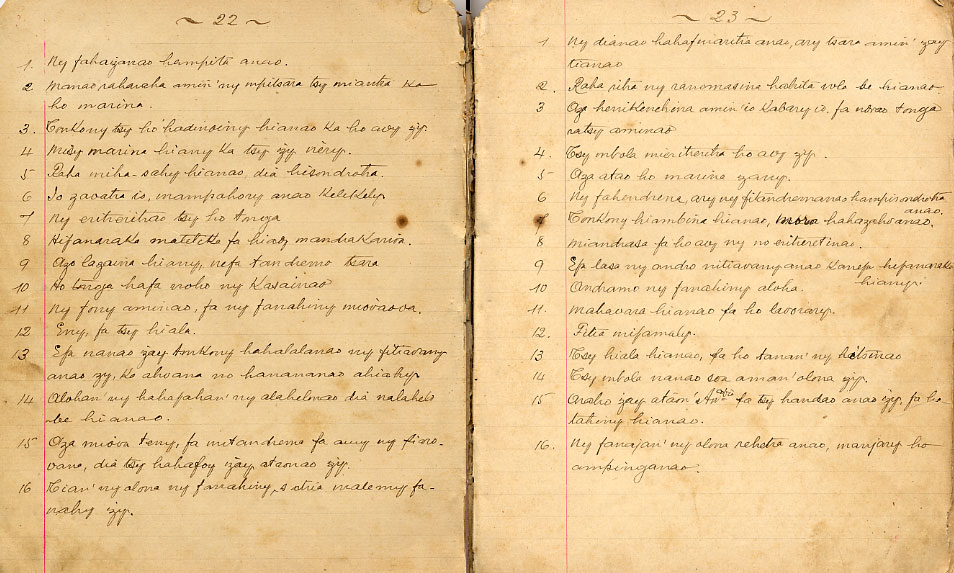 ~ 22 ~
1. Ny fahaizanao hampita anao.
2 Manao raharaha amin' ny mpitsara tsy miantra ka
ho marina.
3. Tonkony tsy ho hadinoiny hianao ka ho avy izy.
4 Misy marina hiany ka tsy izy very.
5 Raha miha-sahy hianao, dia hisondrotra.
6 Io zavatra io, mampahory anao kelikely.
7 Ny eritreritrao tsy ho tonga
8 Hifanaraka matetika fa hiady mandrakariva.
9 Azo lazaina hiany, nefa tandremo tsara
10 Ho tonga hafa noho ny kasainao
11 Ny fony aminao, fa ny fanahiny miovaova.
12 Eny, fa tsy hiala.
13 Efa nanao izay tonkony hahalalanao ny fitiavany
anao izy, ka ahoana no hanananao ahiahy.
14 Alohan' ny hahafahan' ny alahelonao dia nalahelo
be hianao.
15 Aza miova teny, fa mitandrema fa avy ny fiare-
vana, dia tsy hahafoy izay ataonao izy.
16 Tian' ny olona ny fanahiny, satria malemy fa-
nahy izy.
~ 23 ~
1 Ny dianao hahafinaritra anao, ary tsara amin' izay
tianao
2. Raha ritra ny ranomasina hahita vola be hianao
3 Aza henikenehena amin' io kabary io, fa tonga
ratsy aminao
4. Tsy mbola mieritreritra ho avy izy.
5 Aza atao ho marina izany.
6 Ny fahendrena, ary ny fitandremana hampirondrotra
anao.
7 Tonkony hiambina hianao, mora hahazahoanao.
8 Miandrasa fa ho avy ny no eritreretinao.
9 Efa lasa ny andro nitiavany anao kanefa hifanaraka
hiany.
10 Andramo ny fanahiny aloha.
11. Mahavara hianao fa ho lavorary.
12. Fitia mifamaly.
13 Tsy hiala hianao, fa ho tanan' ny
14 Tsy mbola nanao soa aman' olona izy.
15 Araho izay ataon' fa tsy handao anao izy, fa ho
hianao.
16. Ny fanajan' ny olona rehetra anao, manjary ho
ampinganao.